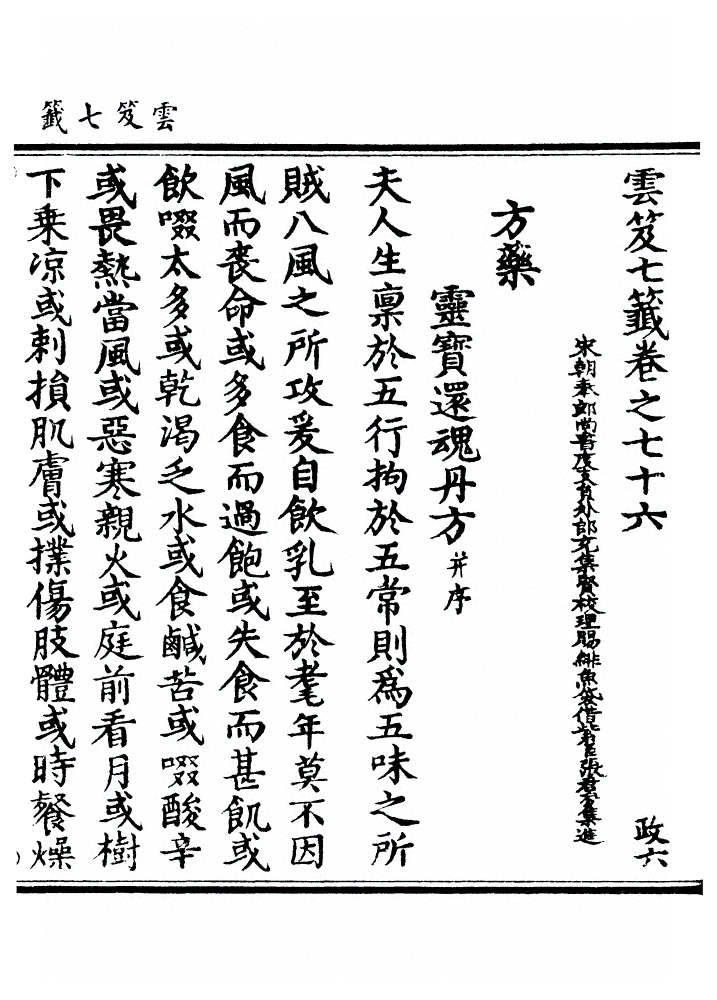 雲笈七籤
雲笈七籤卷之七十六
政六
宋朝奉郎尚書度支員外郎充集賢校理賜緋魚袋借紫臣張君房集進
方藥
靈寶還魂丹方并序
夫人生禀於五行拘於五常則爲五味之所
賊八風之所攻爰自飲乳至於耄年莫不因
風而喪命或多食而過飽或失食而甚飢或
飲啜太多或乾渴乏水或食鹹苦或啜酸辛
或畏熱當風或惡寒親火或庭前看月或樹
下乗凉或刺損肌膚或撲傷肢體或時餐燥